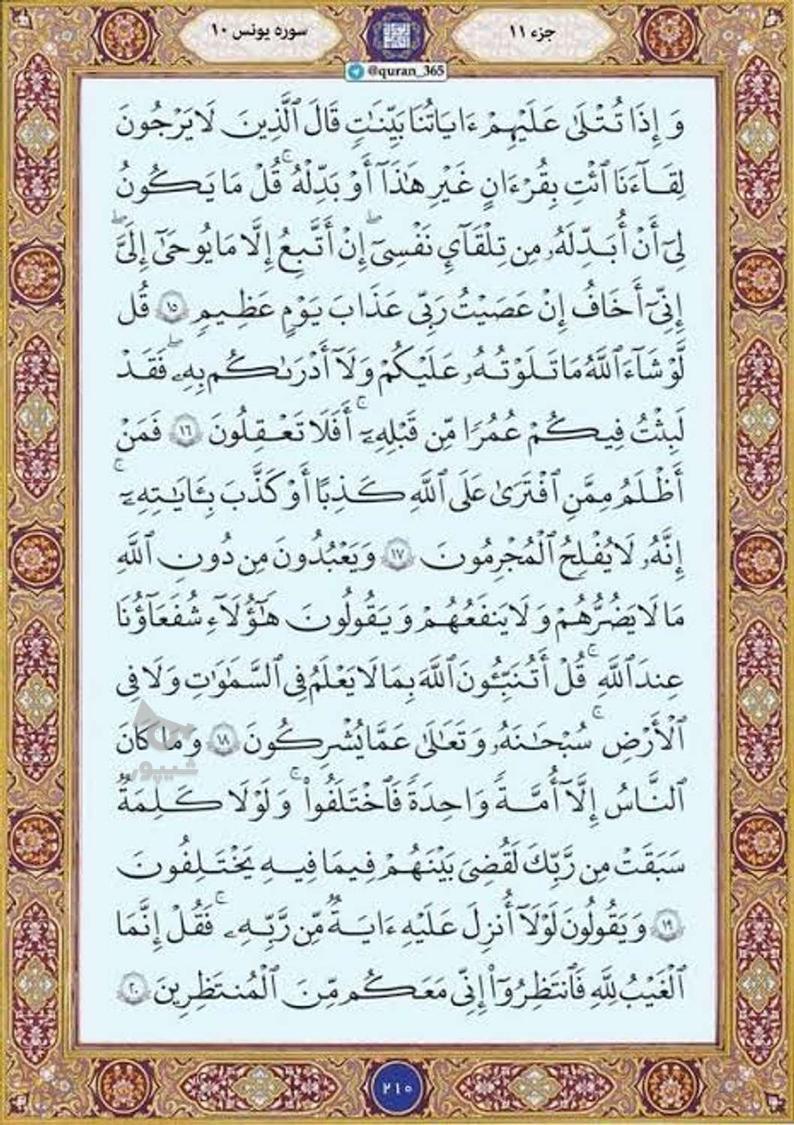 جزء ۱۱
سوره یونس ۱۰
@quran_365
وَإِذَا تُتْلَىٰ عَلَيْهِمْ ءَايَاتُنَا بَيِّنَٰتٍ قَالَ ٱلَّذِينَ لَا يَرْجُونَ
لِقَآءَنَا ٱئْتِ بِقُرْءَانٍ غَيْرِ هَٰذَآ أَوْ بَدِّلْهُ ۚ قُلْ مَا يَكُونُ
لِىٓ أَنْ أُبَدِّلَهُۥ مِن تِلْقَآىِٕ نَفْسِىٓ ۖ إِنْ أَتَّبِعُ إِلَّا مَا يُوحَىٰٓ إِلَىَّ ۖ
إِنِّىٓ أَخَافُ إِنْ عَصَيْتُ رَبِّى عَذَابَ يَوْمٍ عَظِيمٍ ۱۵ قُل
لَّوْ شَآءَ ٱللَّهُ مَا تَلَوْتُهُۥ عَلَيْكُمْ وَلَآ أَدْرَىٰكُم بِهِۦ ۖ فَقَدْ
لَبِثْتُ فِيكُمْ عُمُرًا مِّن قَبْلِهِۦٓ ۚ أَفَلَا تَعْقِلُونَ ۱۶ فَمَنْ
أَظْلَمُ مِمَّنِ ٱفْتَرَىٰ عَلَى ٱللَّهِ كَذِبًا أَوْ كَذَّبَ بِـَٔايَٰتِهِۦٓ ۚ
إِنَّهُۥ لَا يُفْلِحُ ٱلْمُجْرِمُونَ ۱۷ وَيَعْبُدُونَ مِن دُونِ ٱللَّهِ
مَا لَا يَضُرُّهُمْ وَلَا يَنفَعُهُمْ وَيَقُولُونَ هَٰٓؤُلَآءِ شُفَعَٰٓؤُنَا
عِندَ ٱللَّهِ ۚ قُلْ أَتُنَبِّـُٔونَ ٱللَّهَ بِمَا لَا يَعْلَمُ فِى ٱلسَّمَٰوَٰتِ وَلَا فِى
ٱلْأَرْضِ ۚ سُبْحَٰنَهُۥ وَتَعَٰلَىٰ عَمَّا يُشْرِكُونَ ۱۸ وَمَا كَانَ
ٱلنَّاسُ إِلَّآ أُمَّةً وَٰحِدَةً فَٱخْتَلَفُوا۟ ۚ وَلَوْلَا كَلِمَةٌ
سَبَقَتْ مِن رَّبِّكَ لَقُضِىَ بَيْنَهُمْ فِيمَا فِيهِ يَخْتَلِفُونَ
۱۹ وَيَقُولُونَ لَوْلَآ أُنزِلَ عَلَيْهِ ءَايَةٌ مِّن رَّبِّهِۦ ۖ فَقُلْ إِنَّمَا
ٱلْغَيْبُ لِلَّهِ فَٱنتَظِرُوٓا۟ إِنِّى مَعَكُم مِّنَ ٱلْمُنتَظِرِينَ ۲۰
شیپور
۲۱۰